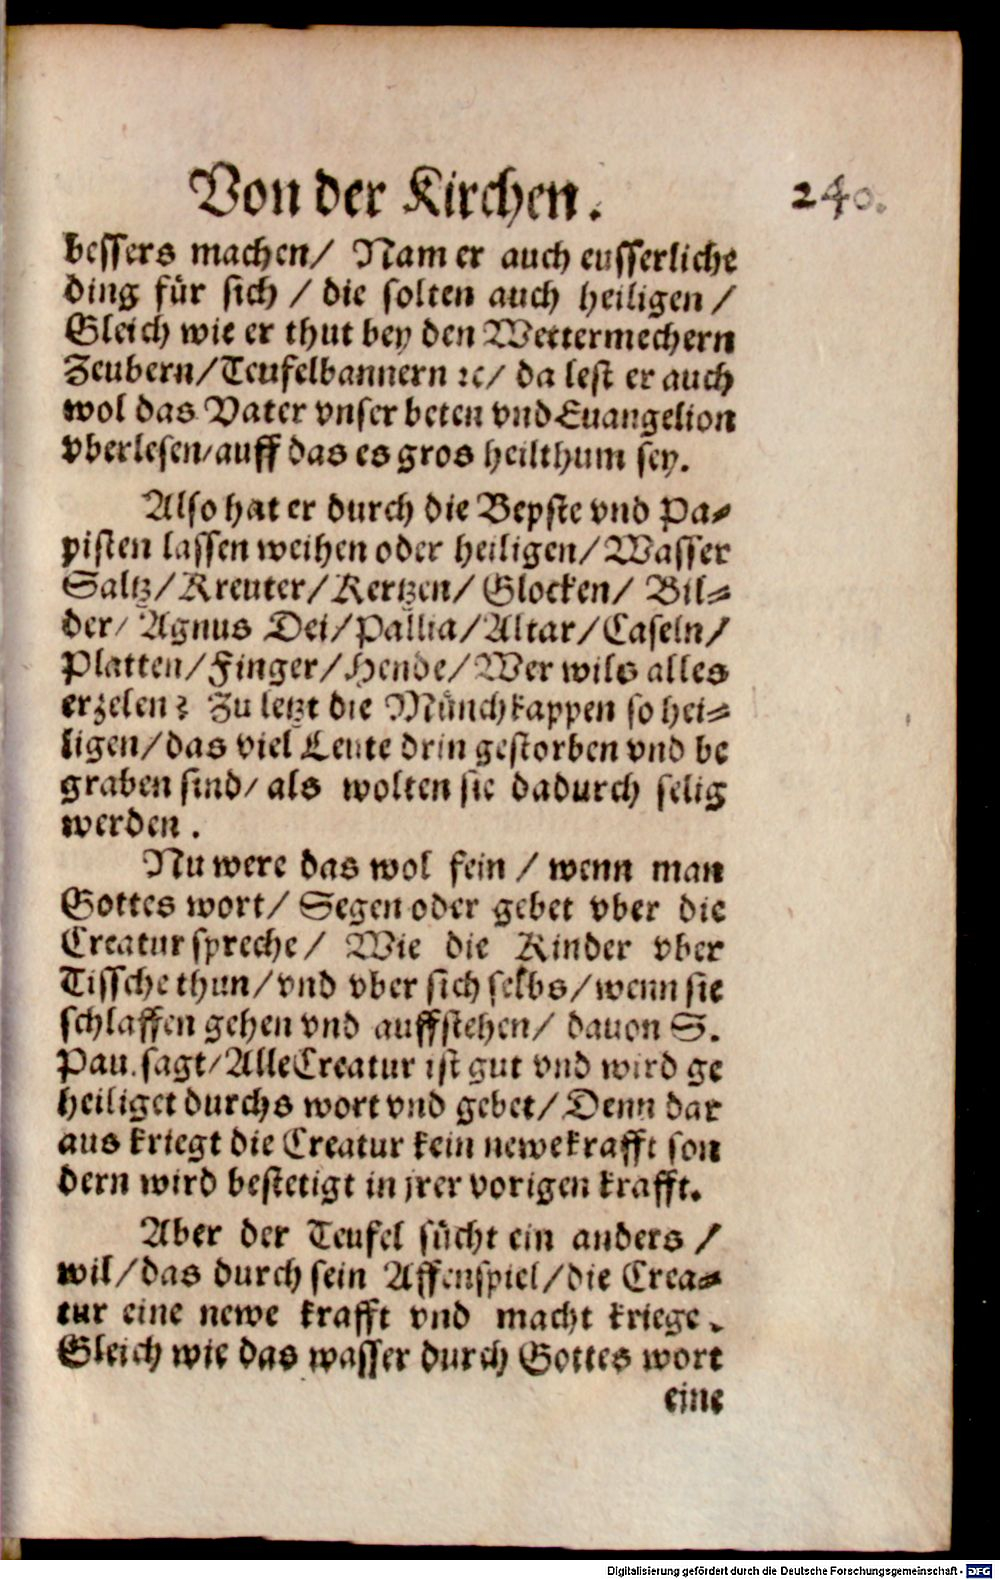 Von der Kirchen. 240.
bessers machen/ Nam er auch eusserliche
ding für sich / die solten auch heiligen /
Gleich wie er thut bey den Wettermechern
Zeubern/Teufelbannern ꝛc/ da lest er auch
wol das Vater vnser beten vnd Euangelion
vberlesen/auff das es gros heilthum sey.
Also hat er durch die Bepste vnd Pa⸗
pisten lassen weihen oder heiligen/Wasser
Saltz/Kreuter/Kertzen/Glocken/ Bil⸗
der/ Agnus Dei/Pallia/Altar/Caseln/
Platten/Finger/Hende/Wer wils alles
erzelen? Zu letzt die Münchkappen so hei⸗
ligen/das viel Leute drin gestorben vnd be
graben sind/ als wolten sie dadurch selig
werden.
Nu were das wol fein / wenn man
Gottes wort/ Segen oder gebet vber die
Creatur spreche/ Wie die Kinder vber
Tissche thun/vnd vber sich selbs/wenn sie
schlaffen gehen vnd auffstehen/ dauon S.
Pau. sagt/Alle Creatur ist gut vnd wird ge
heiliget durchs wort vnd gebet/Denn dar
aus kriegt die Creatur kein newe krafft son
dern wird bestetigt in jrer vorigen krafft.
Aber der Teufel sücht ein anders /
wil/das durch sein Affenspiel/die Crea⸗
tur eine newe krafft vnd macht kriege.
Gleich wie das wasser durch Gottes wort
eine
Digitalisierung gefördert durch die Deutsche Forschungsgemeinschaft - DFG